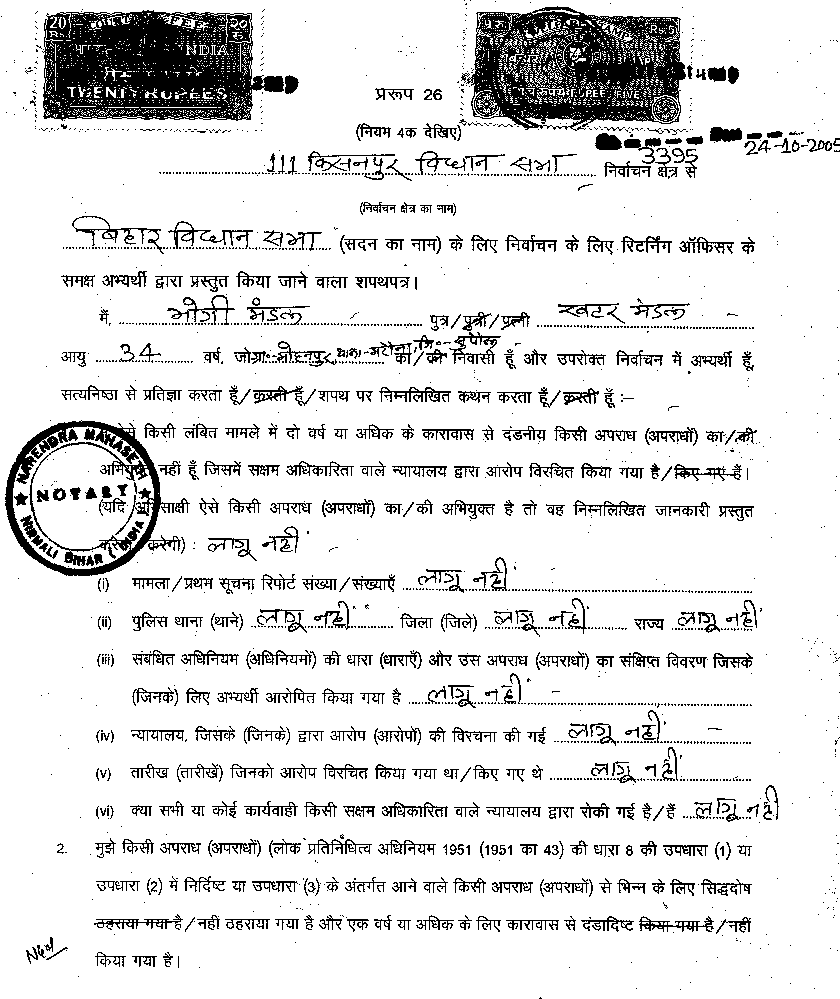 20 20
INDIA
TWENTY RUPEES
प्ररूप 26
(नियम 4क देखिए)
3395 24-10-2005
111 किसनपुर विधान सभा निर्वाचन क्षेत्र से
(निर्वाचन क्षेत्र का नाम)
बिहार विधान सभा (सदन का नाम) के लिए निर्वाचन के लिए रिटर्निंग ऑफिसर के
समक्ष अभ्यर्थी द्वारा प्रस्तुत किया जाने वाला शपथपत्र।
मैं, भोगी मंडल पुत्र/पुत्री/पत्नी खटर मंडल
आयु 34 वर्ष, जो का/की निवासी हूँ और उपरोक्त निर्वाचन में अभ्यर्थी हूँ,
सत्यनिष्ठा से प्रतिज्ञा करता हूँ/करती हूँ/शपथ पर निम्नलिखित कथन करता हूँ/करती हूँ :–
ऐसे किसी लंबित मामले में दो वर्ष या अधिक के कारावास से दंडनीय किसी अपराध (अपराधों) का/की
अभियुक्त नहीं हूँ जिसमें सक्षम अधिकारिता वाले न्यायालय द्वारा आरोप विरचित किया गया है/किए गए हैं।
(यदि अभिसाक्षी ऐसे किसी अपराध (अपराधों) का/की अभियुक्त है तो वह निम्नलिखित जानकारी प्रस्तुत
करेगा/करेगी) : लागू नहीं
NARENDRA MAHASETH
NOTARY
NIRMALI BIHAR (INDIA)
(i) मामला/प्रथम सूचना रिपोर्ट संख्या/संख्याएँ लागू नहीं
(ii) पुलिस थाना (थाने) लागू नहीं जिला (जिले) लागू नहीं राज्य लागू नहीं
(iii) संबंधित अधिनियम (अधिनियमों) की धारा (धाराएँ) और उस अपराध (अपराधों) का संक्षिप्त विवरण जिसके
(जिनके) लिए अभ्यर्थी आरोपित किया गया है लागू नहीं
(iv) न्यायालय, जिसके (जिनके) द्वारा आरोप (आरोपों) की विरचना की गई लागू नहीं
(v) तारीख (तारीखें) जिनको आरोप विरचित किया गया था/किए गए थे लागू नहीं
(vi) क्या सभी या कोई कार्यवाही किसी सक्षम अधिकारिता वाले न्यायालय द्वारा रोकी गई है/हैं लागू नहीं
2. मुझे किसी अपराध (अपराधों) (लोक प्रतिनिधित्व अधिनियम 1951 (1951 का 43) की धारा 8 की उपधारा (1) या
उपधारा (2) में निर्दिष्ट या उपधारा (3) के अंतर्गत आने वाले किसी अपराध (अपराधों) से भिन्न के लिए सिद्धदोष
ठहराया गया है/नहीं ठहराया गया है और एक वर्ष या अधिक के लिए कारावास से दंडादिष्ट किया गया है/नहीं
किया गया है।